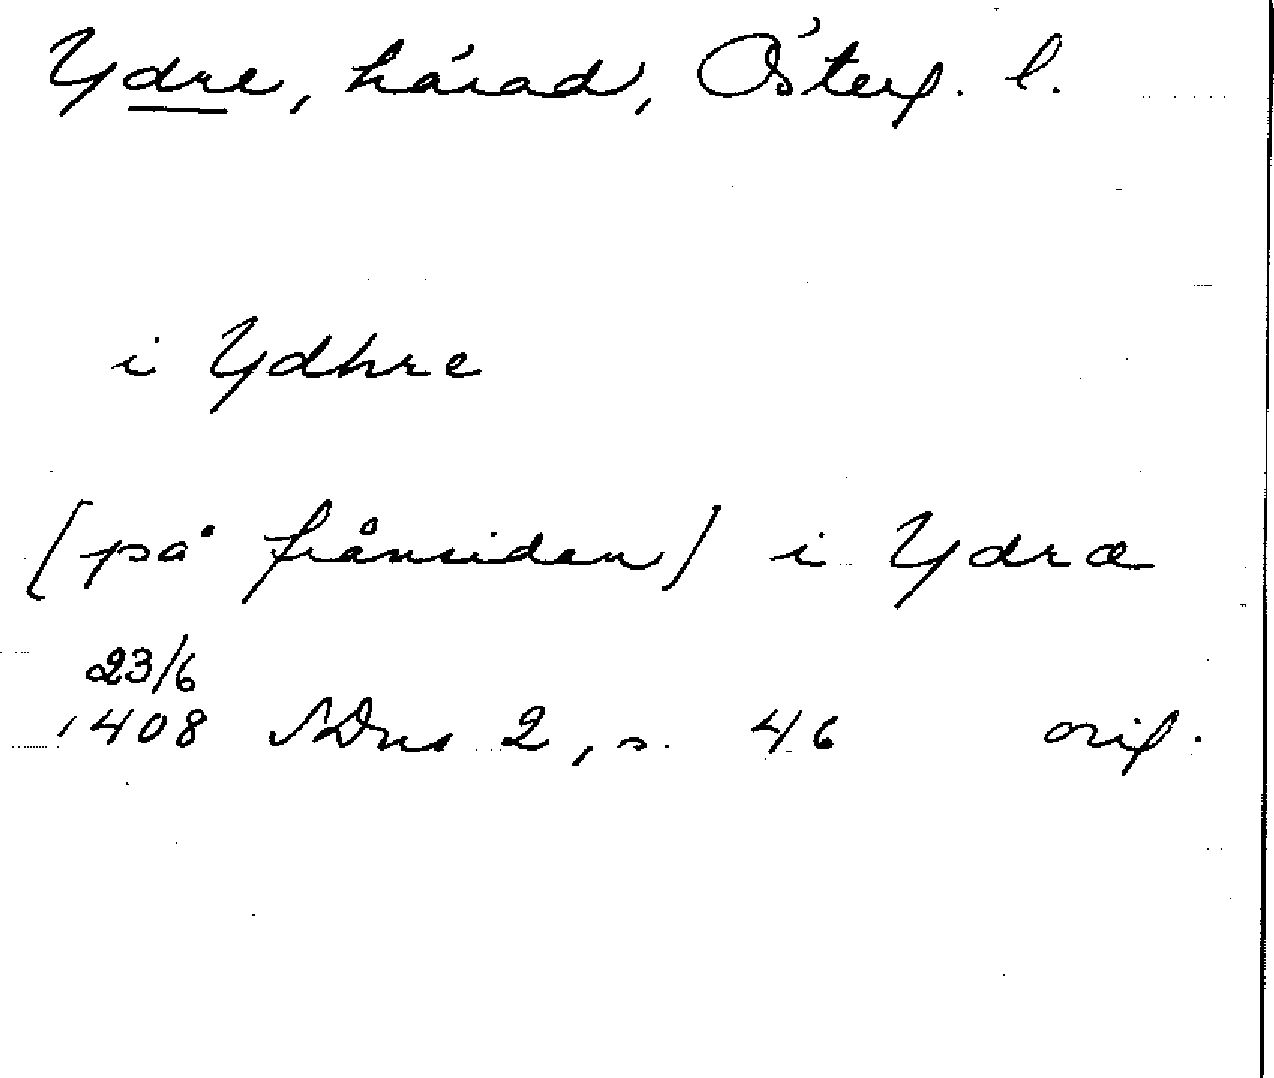 Ydre, härad, Österg. l.
i Ydhre
(på frånsidan) i Ydræ
23/6
1408 SDns 2, s. 46 orig.